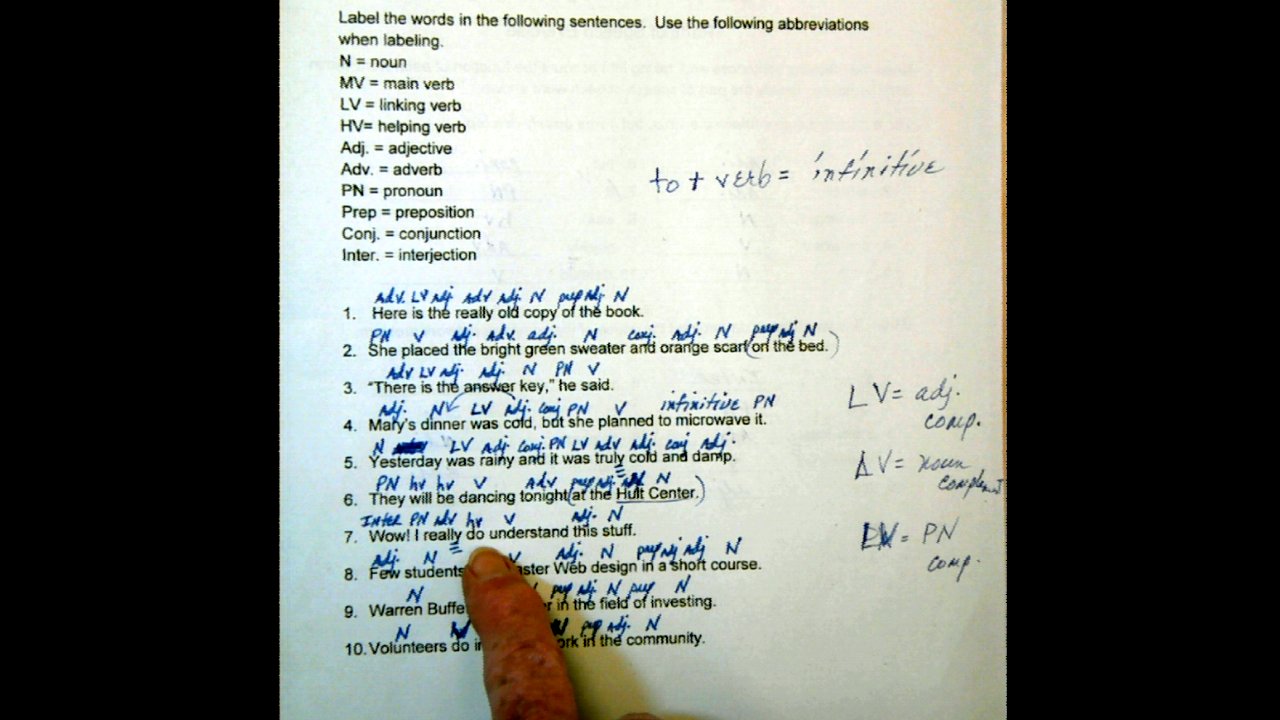 Label the words in the following sentences. Use the following abbreviations
when labeling.
N = noun
MV = main verb
LV = linking verb
HV= helping verb
Adj. = adjective
Adv. = adverb
PN = pronoun
to + verb = infinitive
Prep = preposition
Conj. = conjunction
Inter. = interjection
Adv. LV Adj Adv Adj N prep Adj N
1. Here is the really old copy of the book.
PN V Adj. Adv. adj. N conj. Adj. N prep Adj N
2. She placed the bright green sweater and orange scarf (on the bed.)
Adv LV Adj. Adj. N PN V
3. "There is the answer key," he said.
LV = adj.
comp.
Adj. N LV Adj. conj PN V infinitive PN
4. Mary's dinner was cold, but she planned to microwave it.
N LV Adj. Conj. PN LV Adv Adj. conj Adj.
5. Yesterday was rainy and it was truly cold and damp.
LV = noun
complement
PN hv hv V Adv prep Adj N
6. They will be dancing tonight (at the Hult Center.)
Inter PN Adv hv V Adj. N
7. Wow! I really do understand this stuff.
LV = PN
comp.
Adj. N V Adj. N prep Adj Adj N
8. Few students Web design in a short course.
N prep Adj. N prep N
9. Warren in the field of investing.
N prep Adj. N
10. Volunteers do in the community.